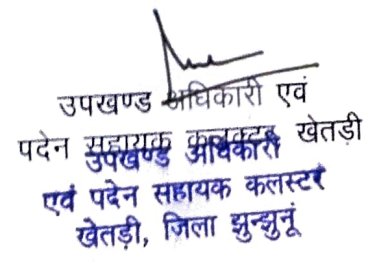 उपखण्ड अधिकारी एवं
पदेन सहायक कलक्टर खेतड़ी
उपखण्ड अधिकारी
एवं पदेन सहायक कलस्टर
खेतड़ी, जिला झुन्झुनूं